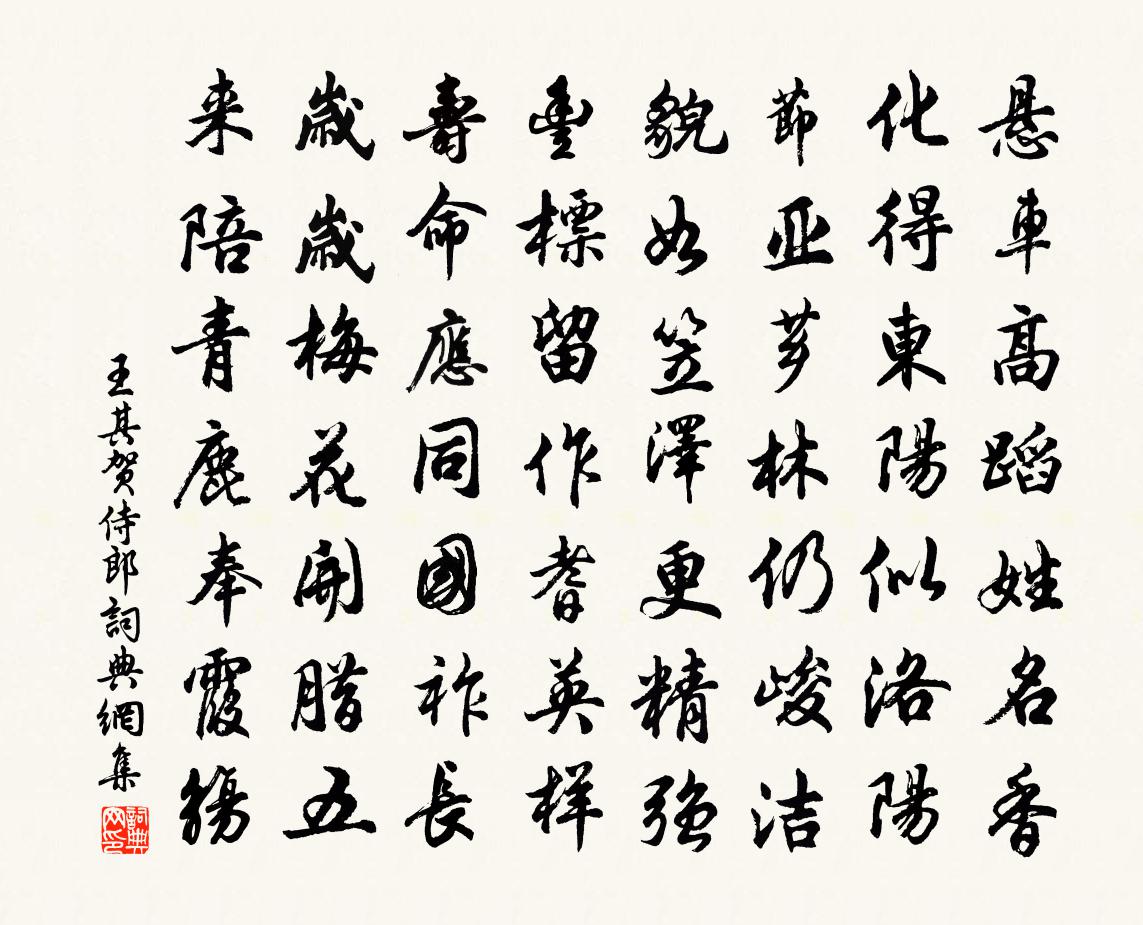 悬車高蹈姓名香
化得東陽似洛陽
莭亚芗林仍峻洁
貌如笠澤更精强
豐標留作耆英样
壽命應同國祚長
歲歲梅花開腊五
来陪青鹿奉霞觴
王其贺侍郎詞典網集
詞典网印